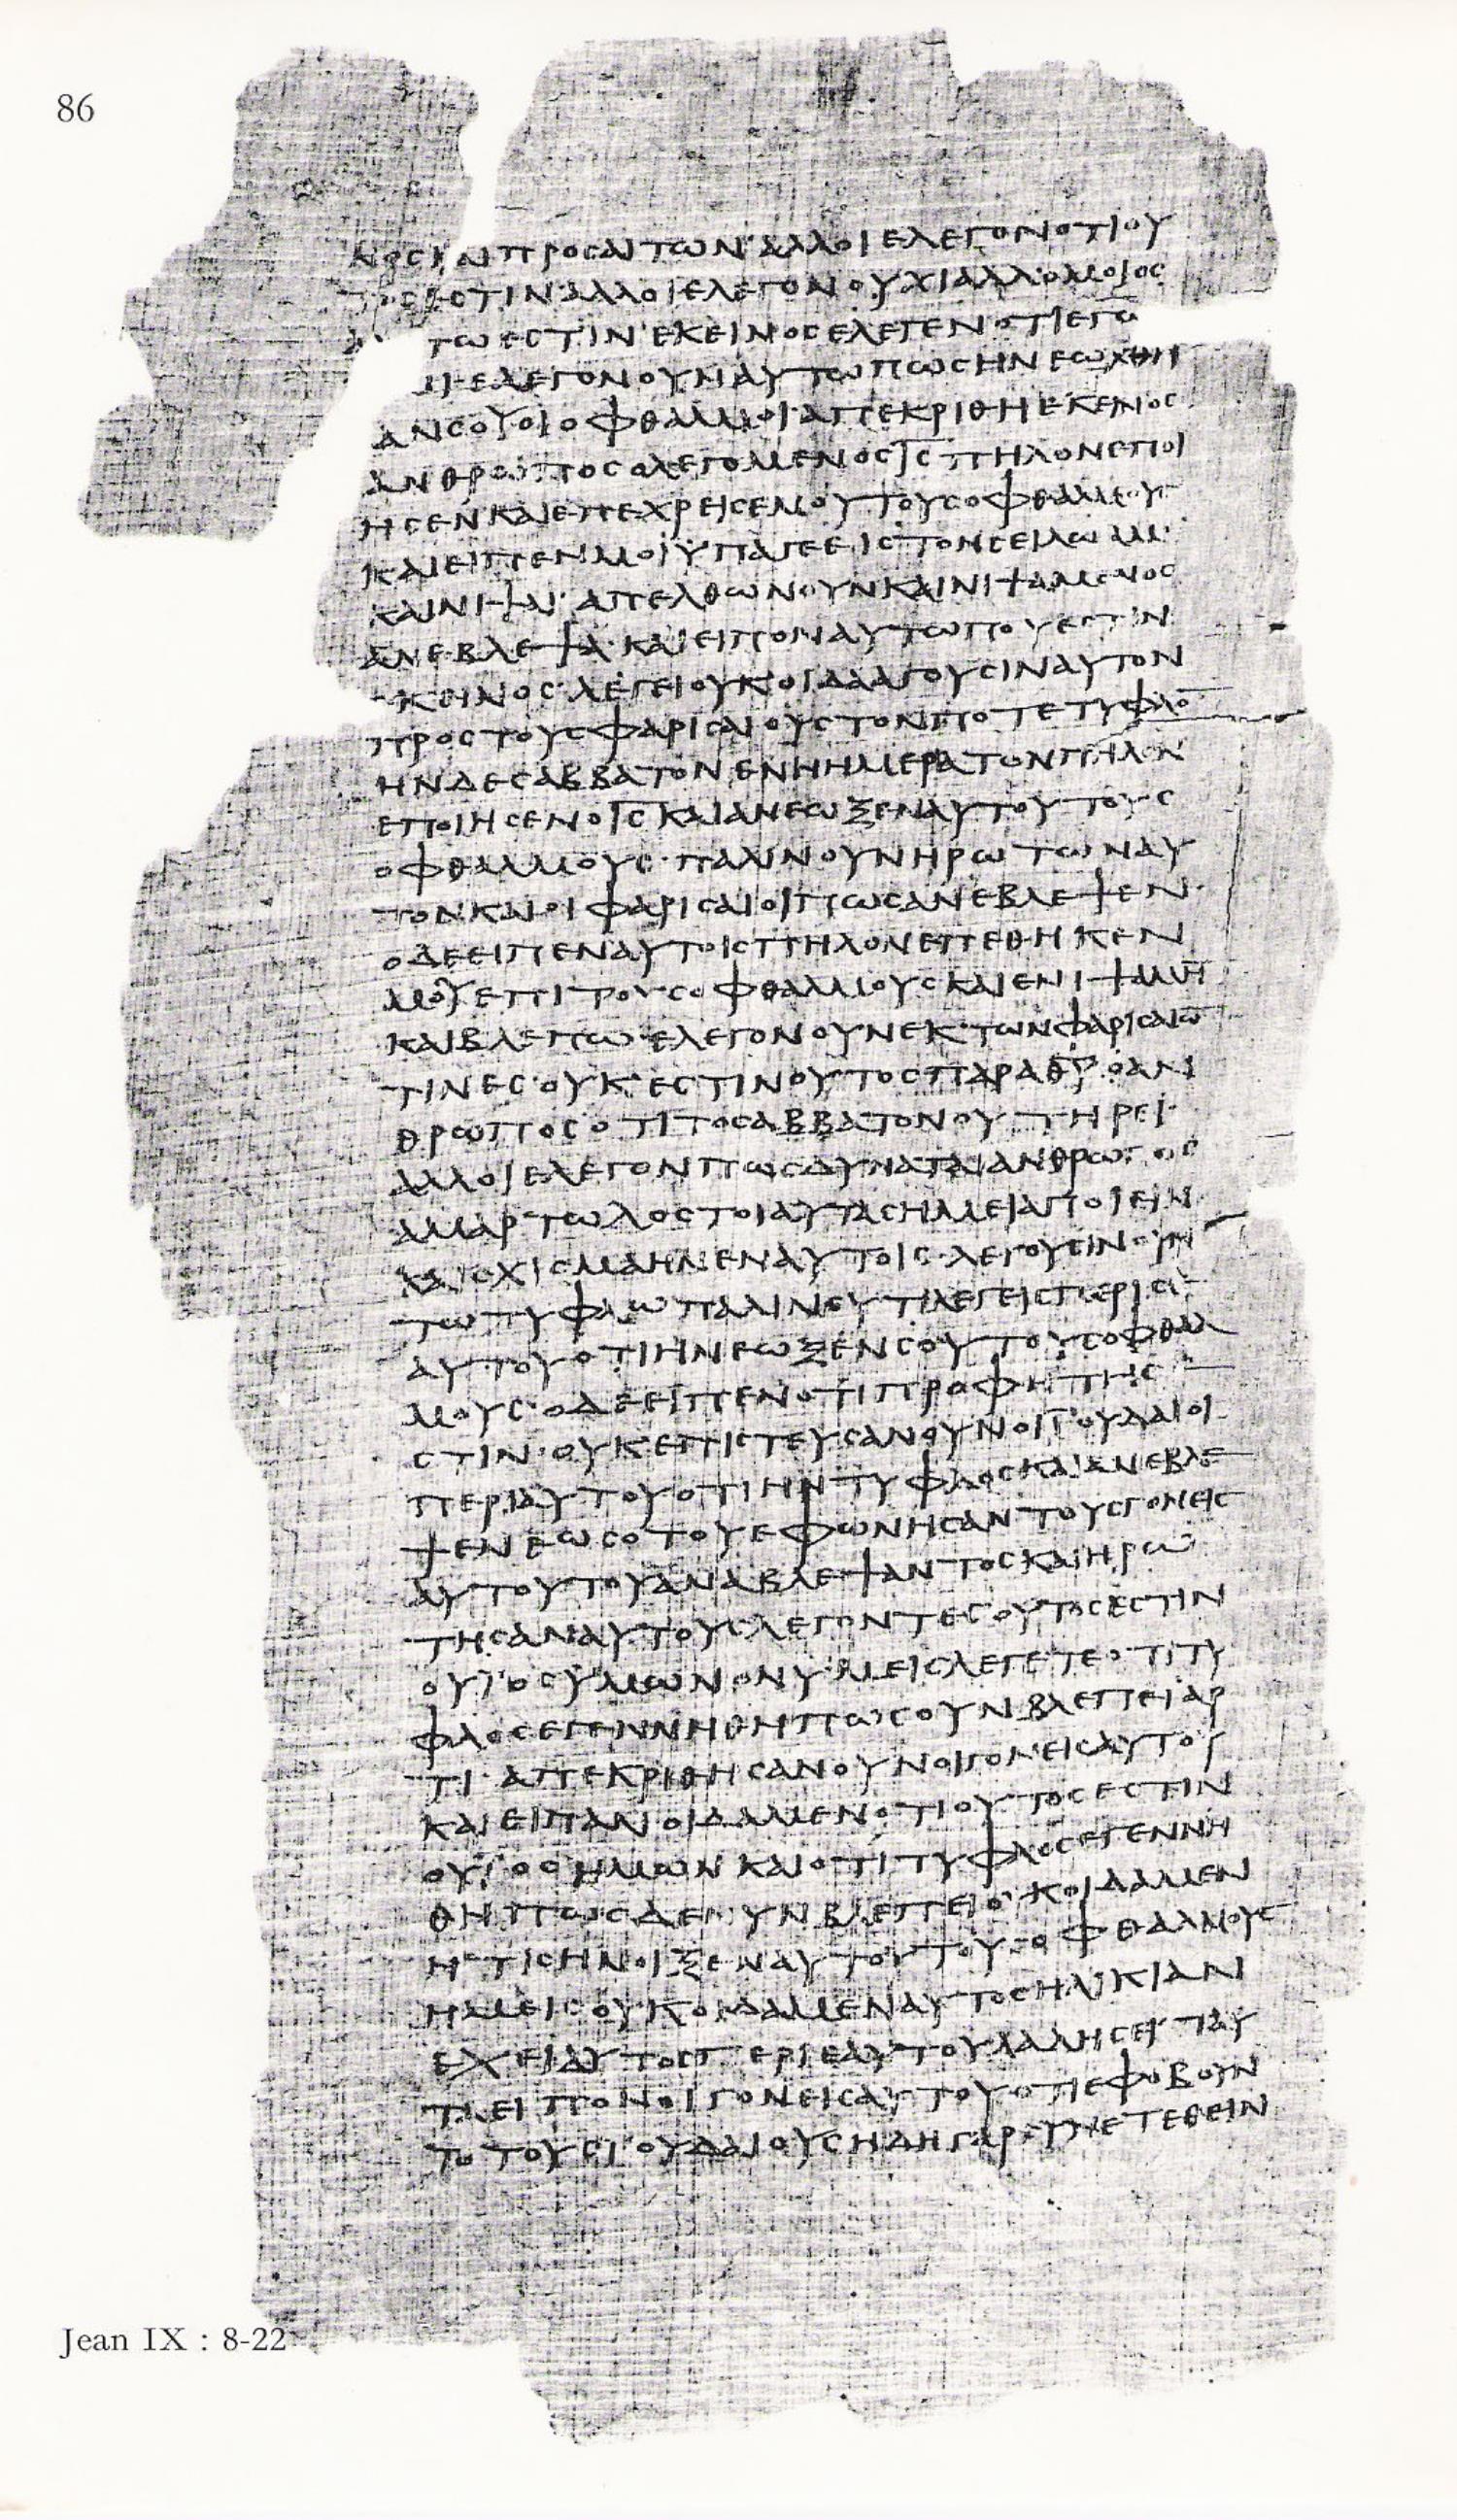 86
ΚΑΙ ΠΡΟCΑΙΤΩΝ· ΑΛΛΟΙ ΕΛΕΓΟΝ ΟΤΙ ΟΥ
ΕCΤΙΝ· ΑΛΛΟΙ ΕΛΕΓΟΝ ΟΥΧΙ ΑΛΛ ΟΜΟΙΟC
ΤΩ ΕCΤΙΝ· ΕΚΕΙΝΟC ΕΛΕΓΕΝ ΟΤΙ ΕΓΩ
ΕΛΕΓΟΝ ΟΥΝ ΑΥΤΩ ΠΩC ΗΝΕΩΧΘΗ
ΑΝ CΟΥ ΟΙ ΟΦΘΑΛΜΟΙ· ΑΠΕΚΡΙΘΗ ΕΚΕΙΝΟC
ΑΝΘΡΩΠΟC Ο ΛΕΓΟΜΕΝΟC ΙC ΠΗΛΟΝ ΕΠΟΙ
ΗCΕΝ ΚΑΙ ΕΠΕΧΡΕΙCΕ ΜΟΥ ΤΟΥC ΟΦΘΑΛΜΟΥC
ΚΑΙ ΕΙΠΕΝ ΜΟΙ ΫΠΑΓΕ ΕΙC ΤΟΝ CΕΙΛΩΑΜ·
ΚΑΙ ΝΙΨΑΙ· ΑΠΕΛΘΩΝ ΟΥΝ ΚΑΙ ΝΙΨΑΜΕΝΟC
ΑΝΕΒΛΕΨΑ· ΚΑΙ ΕΙΠΟΝ ΑΥΤΩ ΠΟΥ ΕCΤΙΝ
ΕΚΕΙΝΟC· ΛΕΓΕΙ ΟΥΚ ΟΙΔΑ ΑΓΟΥCΙΝ ΑΥΤΟΝ
ΠΡΟC ΤΟΥC ΦΑΡΙCΑΙΟΥC ΤΟΝ ΠΟΤΕ ΤΥΦΛΟ̅
ΗΝ ΔΕ CΑΒΒΑΤΟΝ ΕΝ Η ΗΜΕΡΑ ΤΟΝ ΠΗΛΟΝ
ΕΠΟΙΗCΕΝ Ο ΙC ΚΑΙ ΑΝΕΩΞΕΝ ΑΥΤΟΥ ΤΟΥC
ΟΦΘΑΛΜΟΥC· ΠΑΛΙΝ ΟΥΝ ΗΡΩΤΩΝ ΑΥ
ΤΟΝ ΚΑΙ ΟΙ ΦΑΡΙCΑΙΟΙ ΠΩC ΑΝΕΒΛΕΨΕΝ·
Ο ΔΕ ΕΙΠΕΝ ΑΥΤΟΙC ΠΗΛΟΝ ΕΠΕΘΗΚΕΝ
ΜΟΥ ΕΠΙ ΤΟΥC ΟΦΘΑΛΜΟΥC ΚΑΙ ΕΝΙΨΑΜΗ̅
ΚΑΙ ΒΛΕΠΩ· ΕΛΕΓΟΝ ΟΥΝ ΕΚ ΤΩΝ ΦΑΡΙCΑΙΩ̅
ΤΙΝΕC· ΟΥΚ ΕCΤΙΝ ΟΥΤΟC ΠΑΡΑ ΘΥ Ο ΑΝ
ΘΡΩΠΟC ΟΤΙ ΤΟ CΑΒΒΑΤΟΝ ΟΥ ΤΗΡΕΙ·
ΑΛΛΟΙ ΕΛΕΓΟΝ ΠΩC ΔΥΝΑΤΑΙ ΑΝΘΡΩΠΟC
ΑΜΑΡΤΩΛΟC ΤΟΙΑΥΤΑ CΗΜΕΙΑ ΠΟΙΕΙΝ
ΚΑΙ CΧΙCΜΑ ΗΝ ΕΝ ΑΥΤΟΙC· ΛΕΓΟΥCΙΝ ΟΥΝ
ΤΩ ΤΥΦΛΩ ΠΑΛΙΝ CΥ ΤΙ ΛΕΓΕΙC ΠΕΡΙ CΕ
ΑΥΤΟΥ ΟΤΙ ΗΝΕΩΞΕΝ CΟΥ ΤΟΥC ΟΦΘΑΛ
ΜΟΥC· Ο ΔΕ ΕΙΠΕΝ ΟΤΙ ΠΡΟΦΗΤΗC Ε
CΤΙΝ· ΟΥΚ ΕΠΙCΤΕΥCΑΝ ΟΥΝ ΟΙ ΪΟΥΔΑΙΟΙ
ΠΕΡΙ ΑΥΤΟΥ ΟΤΙ ΗΝ ΤΥΦΛΟC ΚΑΙ ΑΝΕΒΛΕ
ΨΕΝ ΕΩC ΟΤΟΥ ΕΦΩΝΗCΑΝ ΤΟΥC ΓΟΝΕΙC
ΑΥΤΟΥ ΤΟΥ ΑΝΑΒΛΕΨΑΝΤΟC ΚΑΙ ΗΡΩ
ΤΗCΑΝ ΑΥΤΟΥC ΛΕΓΟΝΤΕC ΟΥΤΟC ΕCΤΙΝ
Ο ΥΪΟC ΫΜΩΝ ΟΝ ΥΜΕΙC ΛΕΓΕΤΕ ΟΤΙ ΤΥ
ΦΛΟC ΕΓΕΝΝΗΘΗ ΠΩC ΟΥΝ ΒΛΕΠΕΙ ΑΡ
ΤΙ· ΑΠΕΚΡΙΘΗCΑΝ ΟΥΝ ΟΙ ΓΟΝΕΙC ΑΥΤΟΥ
ΚΑΙ ΕΙΠΑΝ ΟΙΔΑΜΕΝ ΟΤΙ ΟΥΤΟC ΕCΤΙΝ
Ο ΥΪΟC ΗΜΩΝ ΚΑΙ ΟΤΙ ΤΥΦΛΟC ΕΓΕΝΝΗ
ΘΗ ΠΩC ΔΕ ΝΥΝ ΒΛΕΠΕΙ ΟΥΚ ΟΙΔΑΜΕΝ
Η ΤΙC ΗΝΟΙΞΕΝ ΑΥΤΟΥ ΤΟΥC ΟΦΘΑΛΜΟΥC
ΗΜΕΙC ΟΥΚ ΟΙΔΑΜΕΝ ΑΥΤΟC ΗΛΙΚΙΑΝ
ΕΧΕΙ ΑΥΤΟC ΠΕΡΙ ΕΑΥΤΟΥ ΛΑΛΗCΕΙ ΤΑΥ
ΤΑ ΕΙΠΟΝ ΟΙ ΓΟΝΕΙC ΑΥΤΟΥ ΟΤΙ ΕΦΟΒΟΥΝ
ΤΟ ΤΟΥC ΪΟΥΔΑΙΟΥC ΗΔΗ ΓΑΡ CΥΝΕΤΕΘΕΙΝ
Jean IX : 8-22